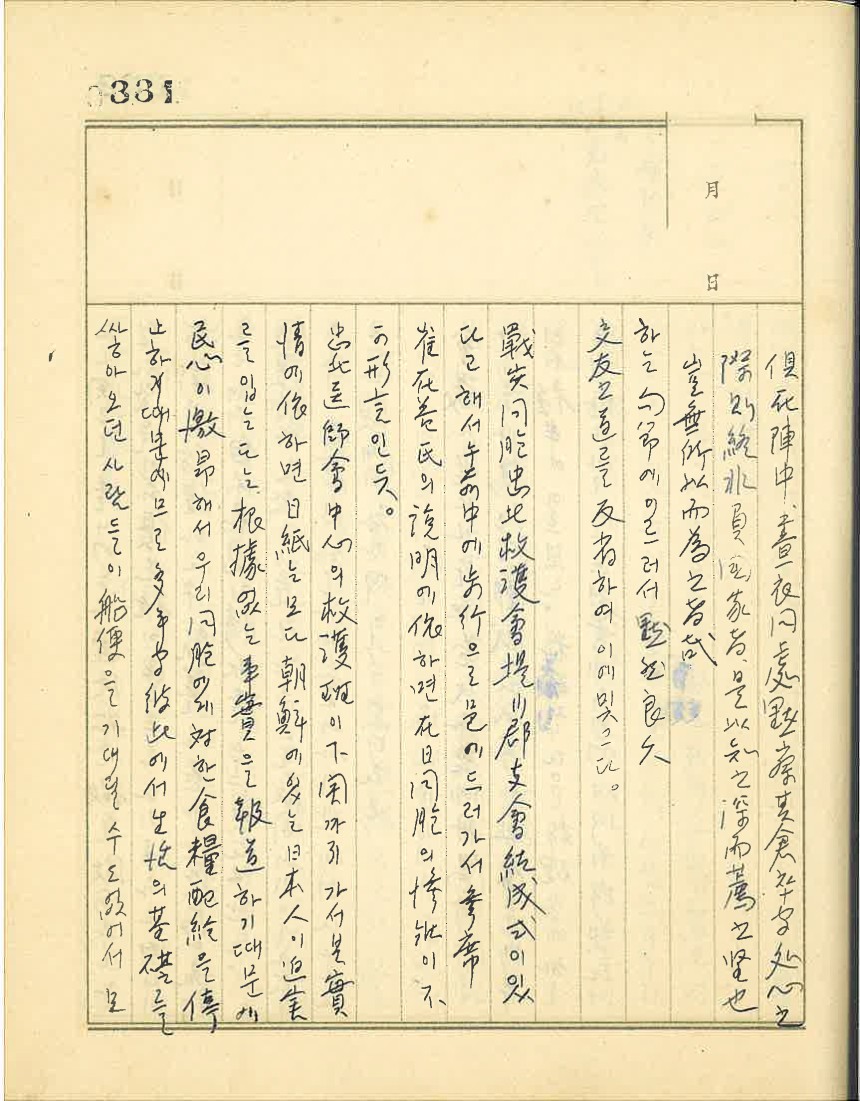 331
月
日
俱死陣中 晝夜同處 默察其倉卒字 処心之
際則終非負国家者 是以知之深而薦之堅也
豈無所以而為之者哉
하는 句節에 이르러서 默然良久
交友之道를 反省하여 이에 밎그다。
戰災同胞忠北救護會堤川郡支會結成式이 있
다고 해서 午前中에 步行으로 邑에 드러가서 參席
崔在益氏의 說明에 依하면 在日同胞의 慘狀이 不
可形言인 듯。
忠北医師會中心의 救護班이 下関까지 가서 본 實
情에 依하면 日紙는 모다 朝鮮에 있는 日本人이 迫害
를 입는다는 根據없는 事實을 報道하기 때문에
民心이 激昻해서 우리 同胞에게 対한 食糧配給을 停
止하기 때문에 므로 多年間 彼此에서 生活의 基礎를
싸아오던 사람들이 船便을 기대릴 수도 없어서 모